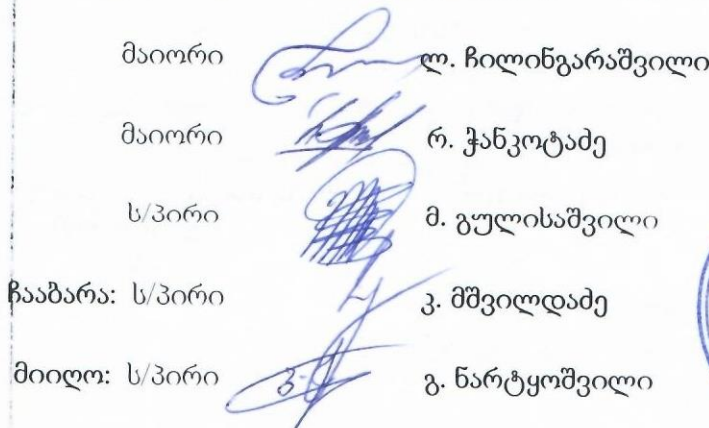 მაიორი ლ. ჩილინგარაშვილი
მაიორი რ. ჭანკოტაძე
ს/პირი მ. გულისაშვილი
ჩააბარა: ს/პირი კ. მშვილდაძე
მიიღო: ს/პირი გ. ნარტყოშვილი